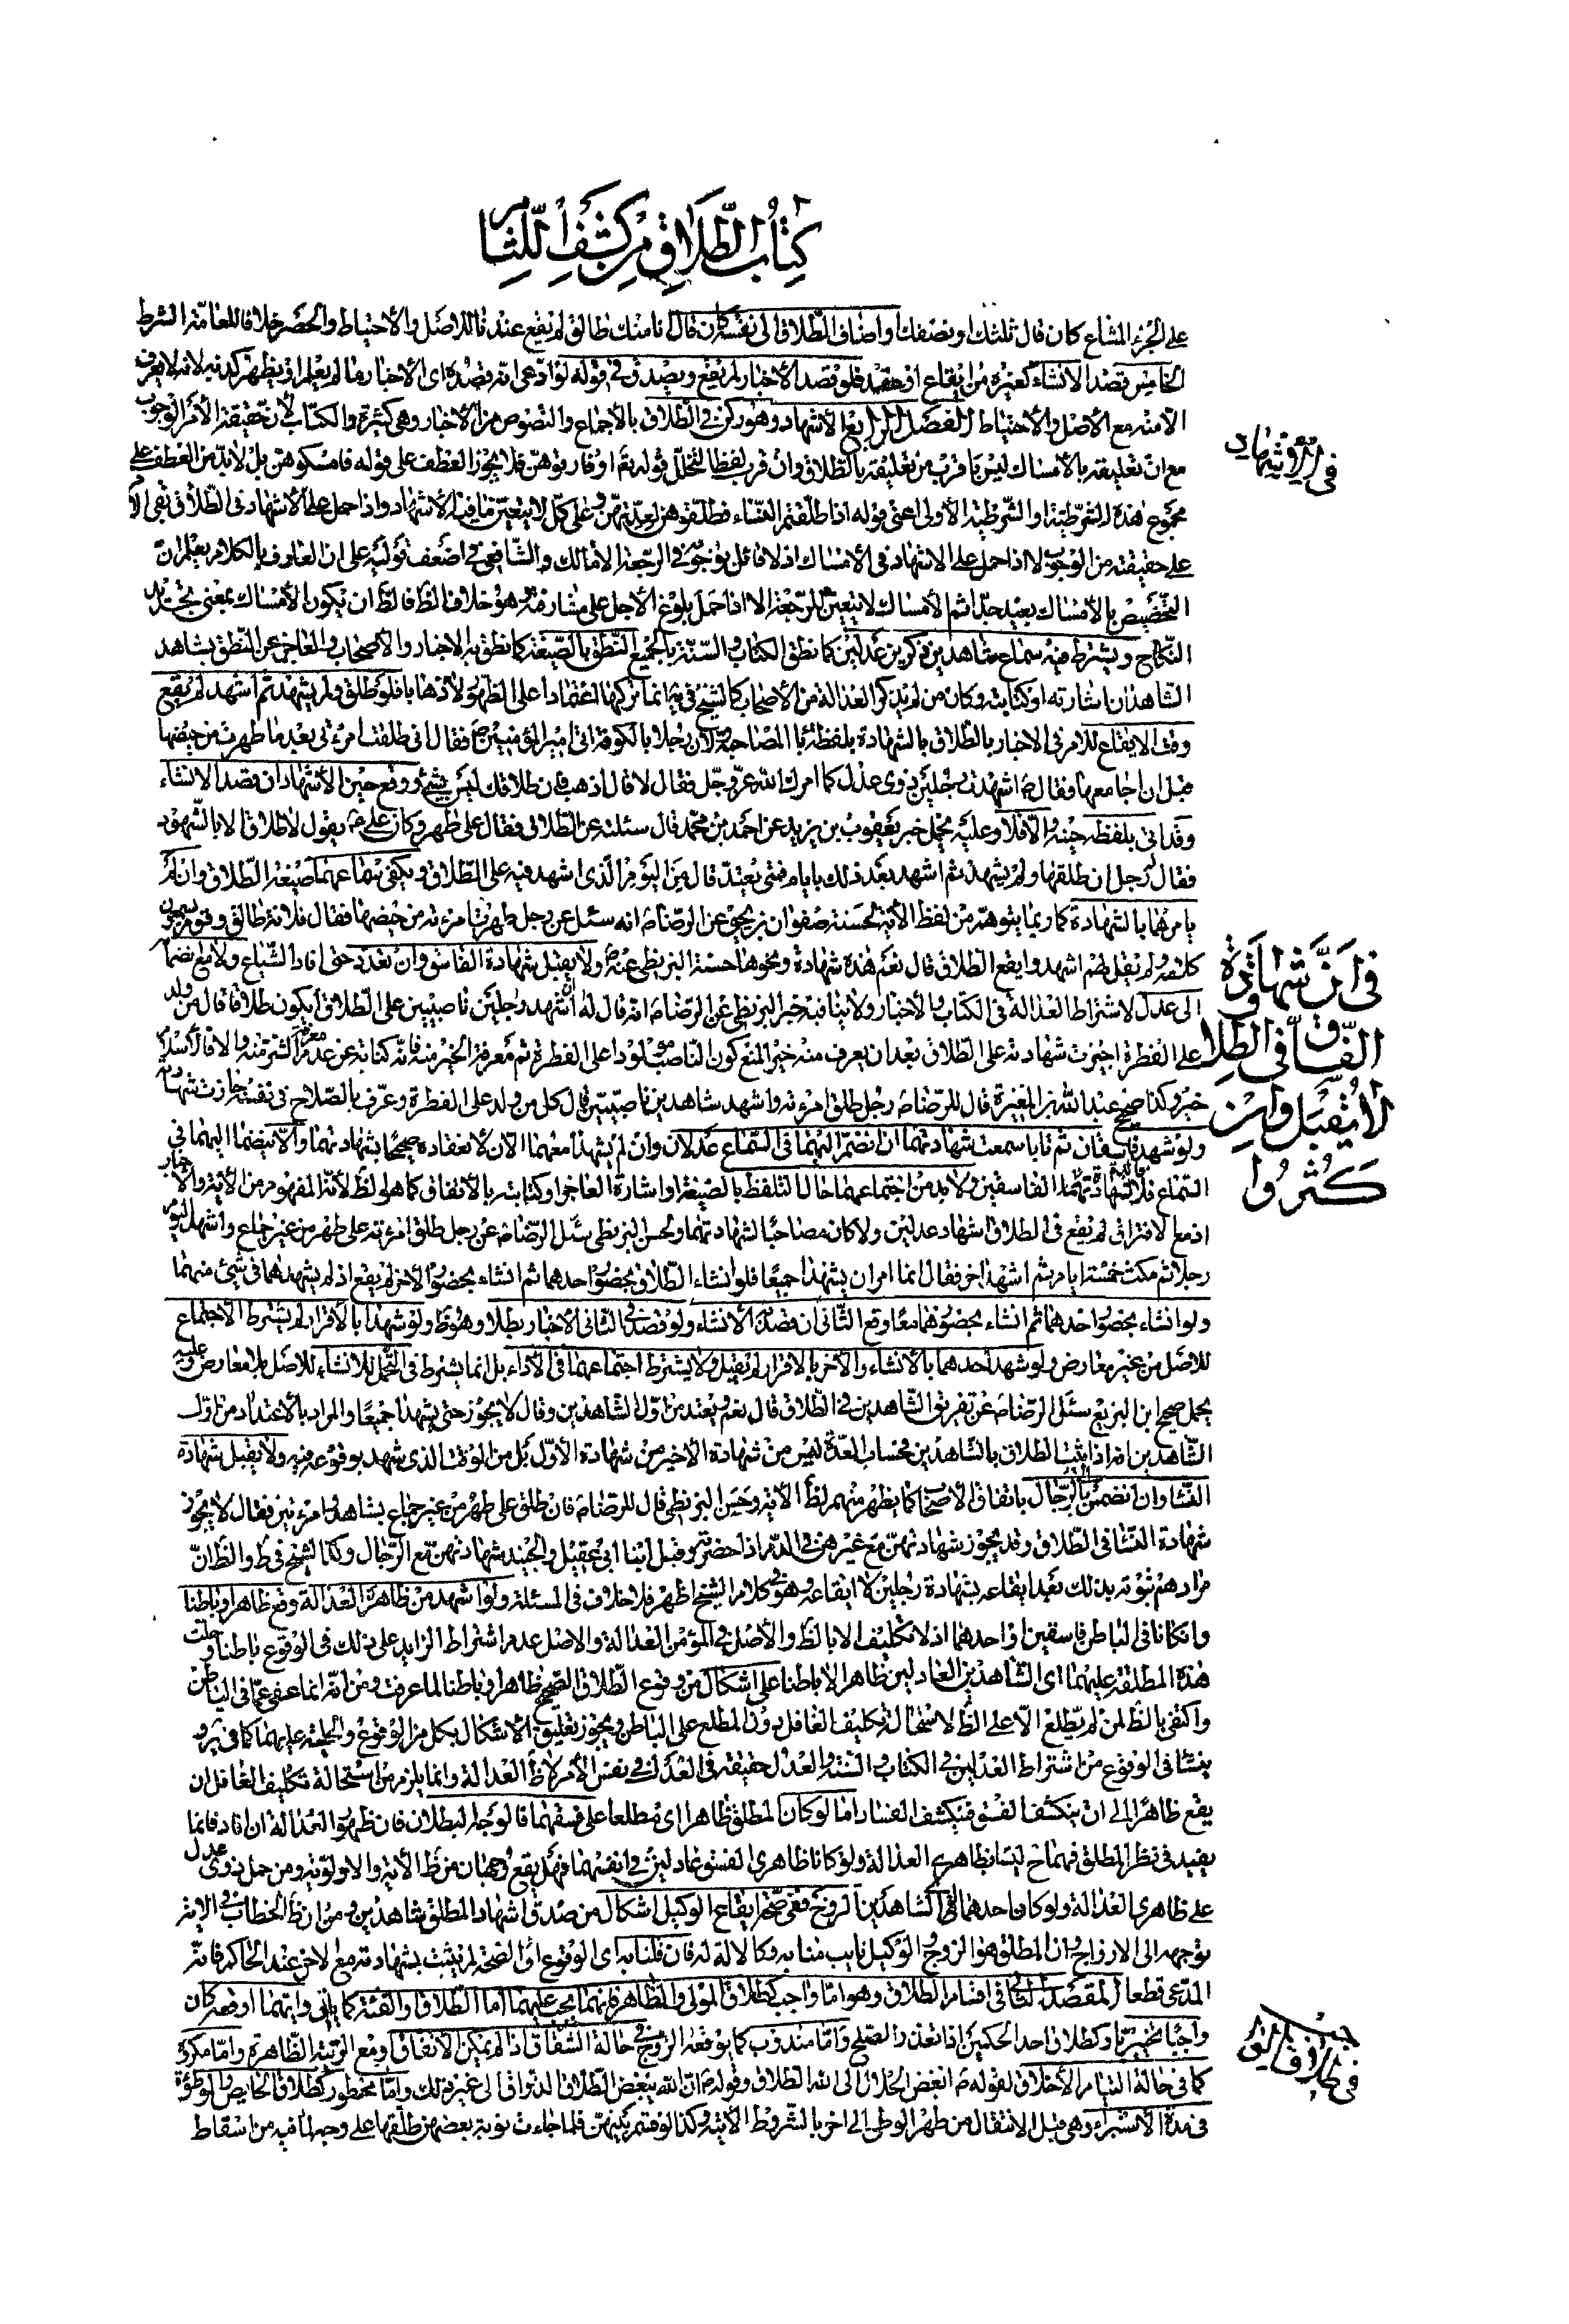 كتاب الطلاق من كشف اللثام
على الجزء المشاع كان قال ثلثك او نصفك او اضاف الطلاق الى نفسه كان قال انا منك طالق لم يقع عندنا للاصل والاحتياط والحصر خلافا للعامة الشرط
الخامس قصد الانشاء كغيره من ايقاع او عقد فلو قصد الاخبار لم يقع ويصدق في قوله لو ادعى انه قصده اى الاخبار ما لم يعلم او يظهر كذبه لانه لا يعرف
الا منه مع الاصل والاحتياط الفصل الرابع الاشهاد وهو ركن في الطلاق بالاجماع والنصوص من الاخبار وهى كثيرة والكتاب لان حقيقة الامر الوجوب
مع ان تعليقه بالامساك ليس باقرب من تعليقه بالطلاق وان قرب لفظا لتخلل قوله تع او فارقوهن فلا يجوز العطف على قوله فامسكوهن بل لا بد من العطف على
مجموع هذه الشرطية او الشرطية الاولى اعنى قوله اذا طلقتم النساء فطلقوهن لعدتهن وعلى كل لا يتعين ما فيه الاشهاد واذا حمل على الاشهاد في الطلاق بقى الامر
على حقيقته من الوجوب لا اذا حمل على الاشهاد في الامساك اذ لا قائل بوجوبه في الرجعة الا مالك والشافعى في اضعف قوليه على ان العارف بالكلام يعلم ان
التخصيص بالامساك بعيد جدا ثم الامساك لا يتعين للرجعة الا اذا حمل بلوغ الاجل على مشارفته وهو خلاف الظ فالظ ان يكون الامساك بمعنى تجديد
النكاح ويشترط فيه سماع شاهدين ذكرين عدلين كما نطق الكتاب والسنة بالجميع النطق بالصيغة كما نطق به الاخبار والاصحاب والعاجز عن النطق يشاهد
الشاهدان اشارته او كتابته وكان من لم يذكر العدالة من الاصحاب كالشيخ في ية انما تركها اعتمادا على الظهور لا ذهابا فلو طلق ولم يشهد ثم اشهد لم يقع
وقت الايقاع للامر في الاخبار بالطلاق بالشهادة بلفظة با المصاحبة ولان رجلا بالكوفة اتى امير المؤمنين ع فقال انى طلقت امرءتى بعد ما طهرت من حيضها
قبل ان اجامعها فقال ع اشهدت رجلين ذوى عدل كما امرك الله عز وجل فقال لا قال اذهب فان طلاقك ليس بشئ ووقع حين الاشهاد ان قصد الانشاء
وقد اتى بلفظه حينه والا فلا وعليه يحمل خبر يعقوب بن يزيد عن احمد بن محمد قال سئلته عن الطلاق فقال على طهر وكان على ع يقول لا طلاق الا بالشهود
فقال رجل ان طلقها ولم يشهد ثم اشهد بعد ذلك بايام فمتى يعتد قال من اليوم الذى اشهد فيه على الطلاق ويكفى سماعهما صيغة الطلاق وان لم
يامرهما بالشهادة كما ربما يتوهم من لفظ الاية لحسنة صفوان بن يحيى عن الرضا ع انه سئل عن رجل طهرت امرءته من حيضها فقال فلانة طالق وقوم يسمعون
كلامه ولم يقل لهم اشهدوا ايقع الطلاق قال نعم هذه شهادة ونحوها حسنة البزنطى عنه ع ولا يقبل شهادة الفاسق وان تعدد حتى افاد الشياع ولا مع انضما
الى عدل لاشتراط العدالة في الكتاب والاخبار ولا ينافيه خبر البزنطى عن الرضا ع انه قال له اشهد رجلين ناصبيين على الطلاق ايكون طلاقا قال من ولد
على الفطرة اجيزت شهادته على الطلاق بعد ان يعرف منه خير لمنع كون الناصب مولودا على الفطرة ثم معرفة الخير منه فانه كناية عن عدم معرفة الشر منه والا قال
خير وكذا صحيح عبد الله بن المغيرة قال للرضا ع رجل طلق امرءته واشهد شاهدين ناصبيين قال كل من ولد على الفطرة وعرف بالصلاح في نفسه جازت شهادته
ولو شهد فاسقان ثم تابا سمعت شهادتهما ان انضم اليهما في السماع عدلان وان لم يشهدا معهما الان لانعقاده صحيحا بشهادتهما والا ينضما اليهما في
السماع فلا الفاسقين ولا بد من اجتماعهما حال التلفظ بالصيغة او اشارة العاجز او كتابته بالاتفاق كما هو الظ لانه المفهوم من الاية والاخبار
اذ مع الافتراق لم يقع في الطلاق اشهاد عدلين ولا كان مصاحبا لشهادتهما ولحسن البزنطى سئل الرضا ع عن رجل طلق امرءته على طهر من غير جماع واشهد اليوم
رجلا ثم مكث خمسة ايام ثم اشهد اخر فقال انما امر ان يشهدا جميعا فلو انشاء الطلاق بحضور احدهما ثم انشاء بحضور الاخر لم يقع اذ لم يشهدهما في شئ منهما
ولو انشاء بحضور احدهما ثم انشاء بحضورهما معا وقع الثانى ان قصد به الانشاء ولو قصد في الثانى الاخبار بطلا وهو ظ ولو شهدا بالاقرار لم يشترط الاجتماع
للاصل من غير معارض ولو شهد احدهما بالانشاء والاخر بالاقرار لم يقبل ولا يشترط اجتماعهما في الاداء بل انما يشترط في التحمل للانشاء للاصل بلا معارض وعليه
يحمل صحيح ابن البزيع سئل الرضا ع عن تفريق الشاهدين في الطلاق قال نعم ويعتد من اول الشاهدين وقال لا يجوز حتى يشهدا جميعا والمراد بالاعتداد من اول
الشاهدين انه اذا ثبت الطلاق بالشاهدين فحساب العدة ليس من شهادة الاخير من شهادة الاول بل من الوقت الذى شهد بوقوعه فيه ولا يقبل شهادة
النسا وان انضممن الى الرجال باتفاق الاصحاب كما يظهر منهم لظ الاية وحسن البزنطى قال للرضا ع فان طلق على طهر من غير جماع بشاهد وامرءتين فقال لا يجوز
شهادة النسا في الطلاق وقد يجوز شهادتهن مع غيرهن في الدم اذا حضرته وقبل ابنا ابى عقيل والجنيد شهادتهن مع الرجال وكذا الشيخ في ط والظ ان
مرادهم ثبوته بذلك بعد ايقاعه بشهادة رجلين لا ايقاعه وهو في كلام الشيخ اظهر فلا خلاف في المسئلة ولو اشهد من ظاهره العدالة وقع ظاهرا وباطنا
وان كانا في الباطن فاسقين او احدهما اذ لا تكليف الا بالظ والاصل في المؤمن العدالة والاصل عدم اشتراط الزايد على ذلك في الوقوع باطنا وحلت
هذه المطلقة عليهما اى الشاهدين العادلين ظاهرا لا باطنا على اشكال من وقوع الطلاق الصحيح ظاهرا وباطنا لما عرفت ومن انه انما عفى عما في الباطن
واكتفى بالظ لمن لم يطلع الا على الظ لاستحالة تكليف الغافل دون المطلع على الباطن ويجوز تعليق الاشكال بكل من الوقوع والحلية عليهما كما في
ينشا في الوقوع من اشتراط العدلين في الكتاب والسنة والعدل حقيقة في العدل في نفس الامر لا ظ العدالة وانما يلزم من استحالة تكليف الغافل ان
يقع ظاهرا الى ان ينكشف الفسق فينكشف الفساد اما لو كان المطلق ظاهرا اى مطلعا على فسقهما فالوجه البطلان فان ظهور العدالة ان افاد فانما
يفيد في نظر المطلق فهما ح ليسا بظاهرى العدالة ولو كانا ظاهرى الفسق عادلين في انفسهما فهل يقع وجهان من ظ الاية والاولوية ومن حمل ذوى عدل
على ظاهرى العدالة ولو كان احدهما اى الشاهدين الزوج ففى صحة ايقاع الوكيل اشكال من صدق اشهاد المطلق شاهدين ومن ان ظ الخطاب في الاية
توجهه الى الازواج وان المطلق هو الزوج والوكيل نايب منابه وكالالة له فان قلنا به اى الوقوع او الصحة لم يثبت بشهادته مع الاخر عند الحاكم فانه
المدعى قطعا المقصد الثانى في اقسام الطلاق وهو اما واجب كطلاق المولى والمظاهر فانهما يجب عليهما اما الطلاق والفئة كما ياتى وايهما اوقعه كان
واجبا تخييرا وكطلاق احد الحكمين اذا تعذر الصلح واما مندوب كما يوقعه الزوج في حالة الشقاق اذا لم يمكن الاتفاق ومع الريبة الظاهرة واما مكروه
كما في حالة التيام الاخلاق لقوله ع ابغض الحلال الى الله الطلاق وقوله ع ان الله يبغض الطلاق الذواق الى غير ذلك واما محظور كطلاق الحايض والموطوءة
في مدة الاستبراء وهى قبل الانتقال من طهر الوطى الى اخر بالشروط الاتية وكذا لو قسم بينهن فلما جاءت نوبة بعضهن طلقها على وجه لما فيه من اسقاط
في الاشهاد
في ان شهادة
الفساق في الطلاق
لا تقبل وان
كثروا